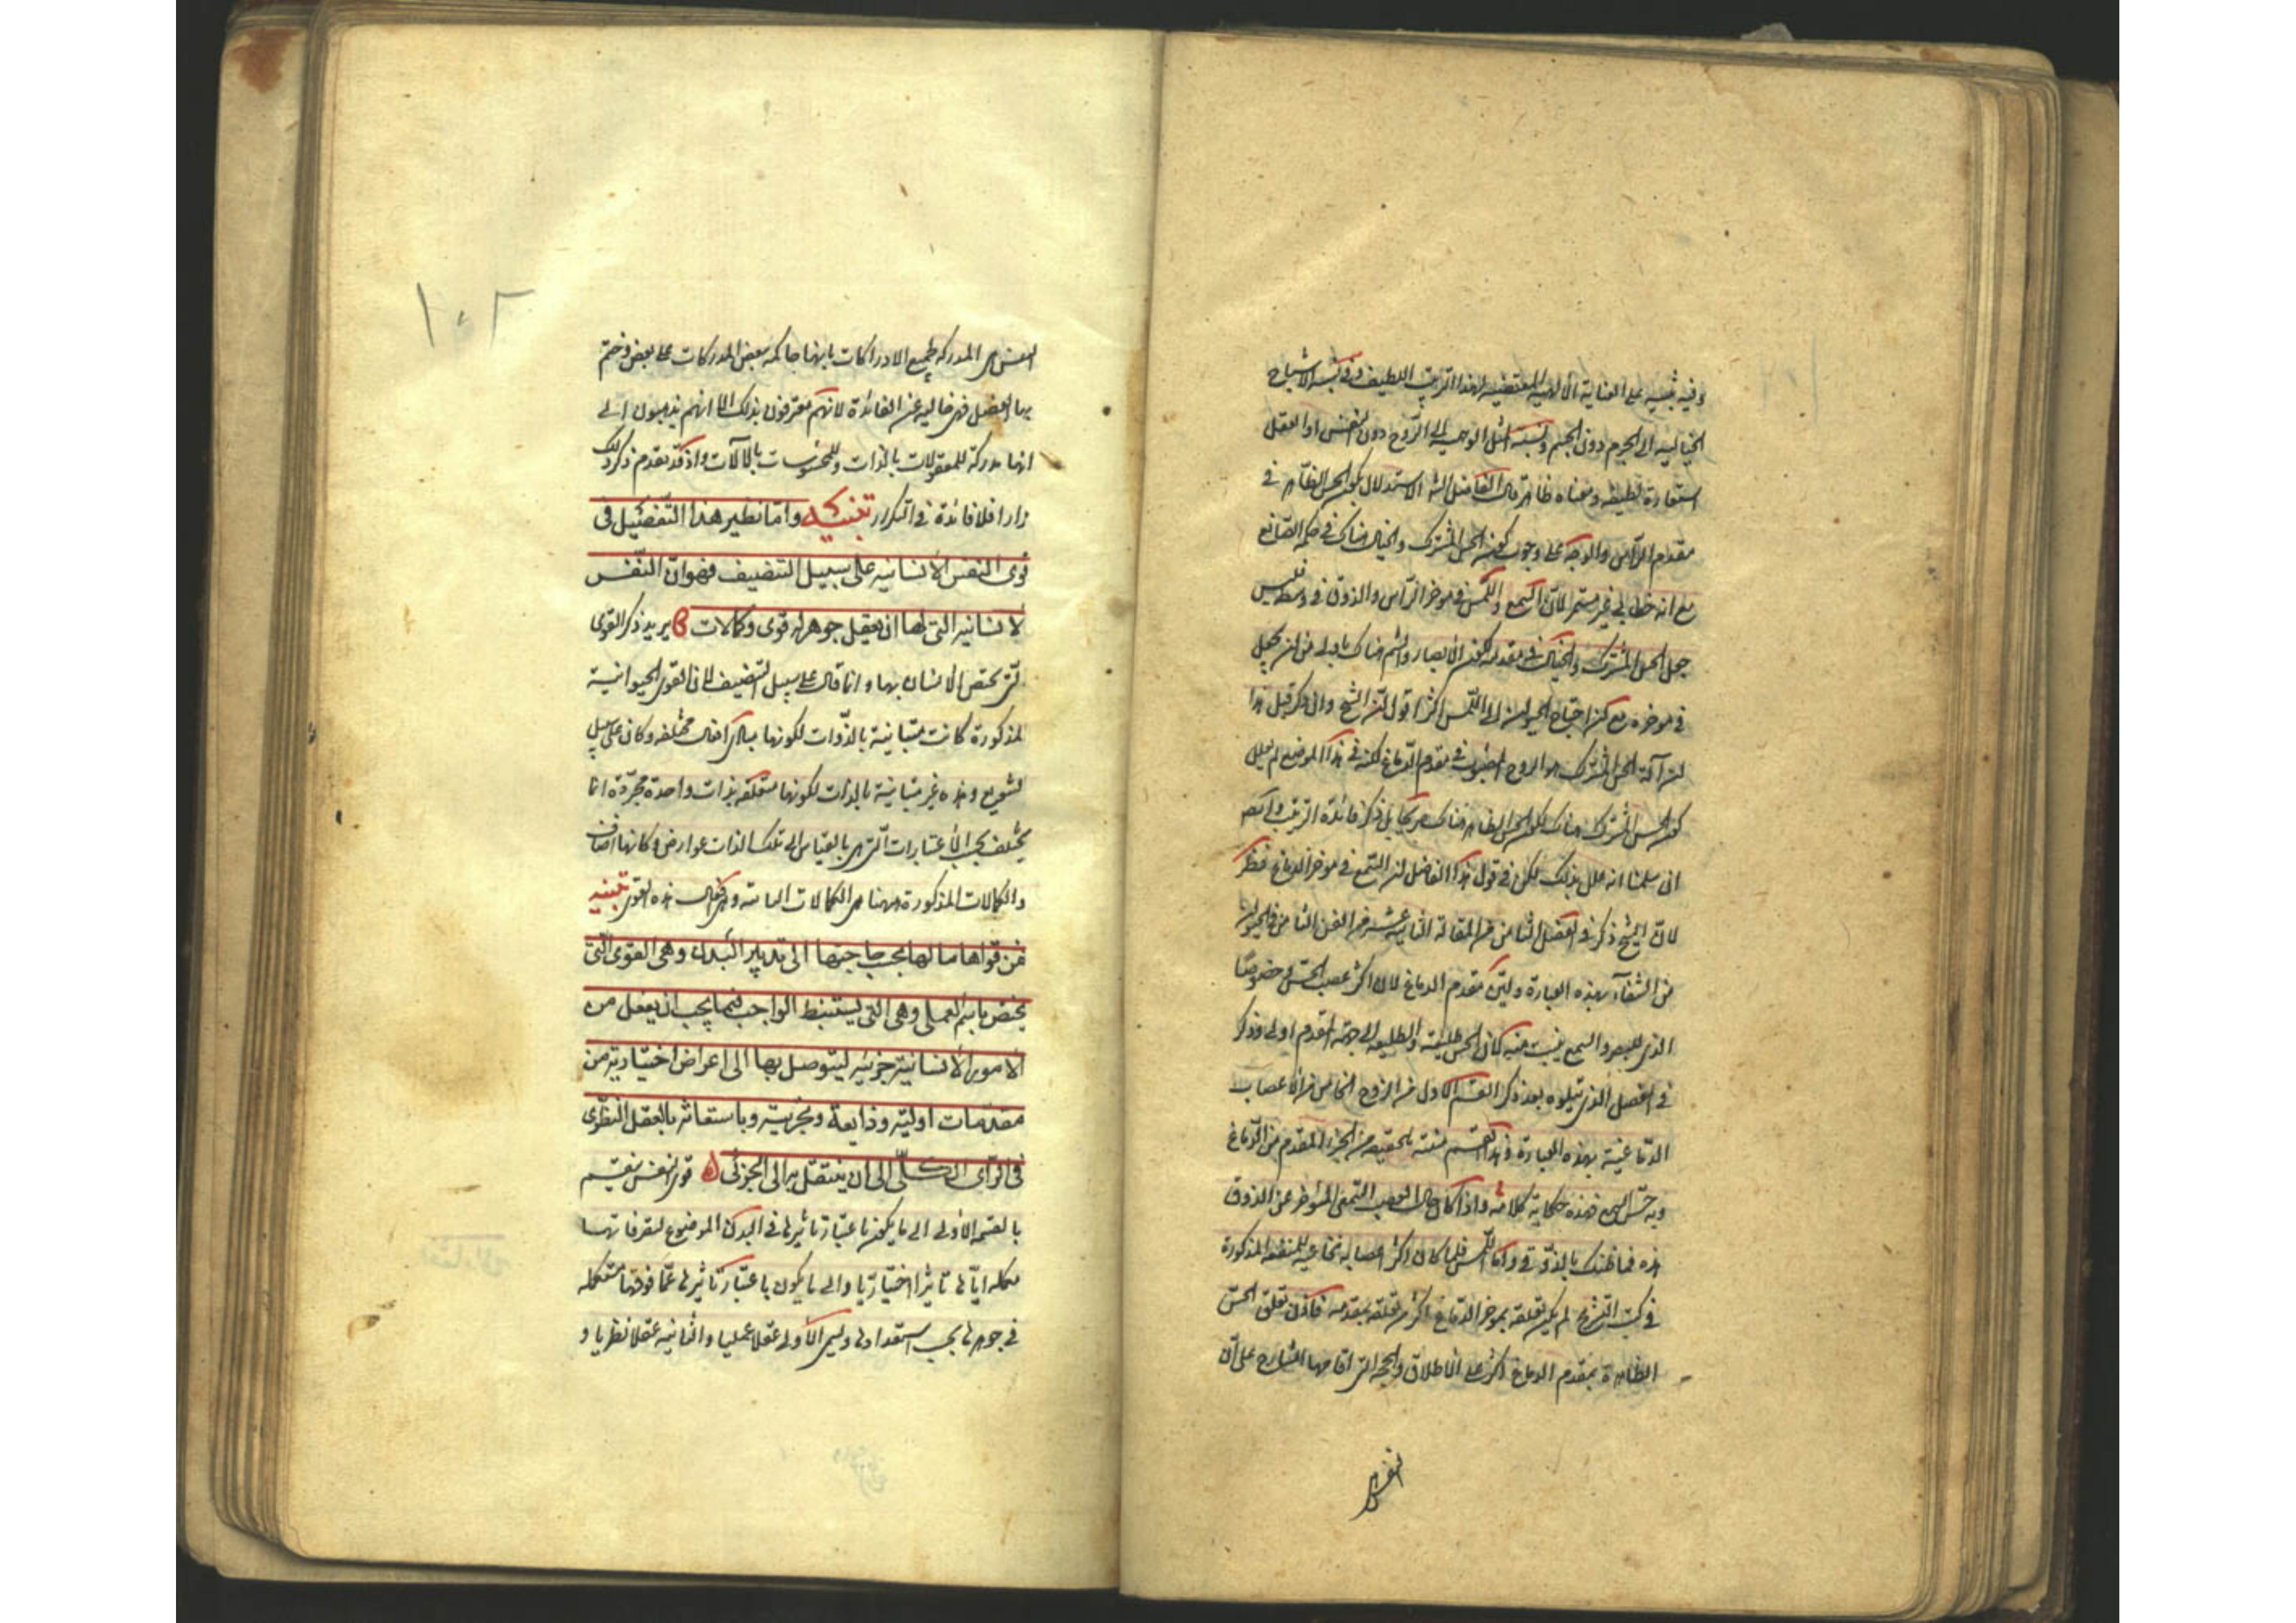 وفيه تنبيه على العناية الالهية المقتضية لهذا الترتيب اللطيف وفي نسبة الاشباح
الخيالية الى الجرم دون الجسم ونسبة المثل الوهمية الى الروح دون النفس او العقل
استعارة لطيفة ومعناه ظاهر قال الفاضل الشارح الاستدلال بكون الحس الظاهر في
مقدم الرأس والوجه على وجوب كون الحس المشترك والخيال هناك في حكمة الصانع
مع انه خطابي غير مستمر لان السمع واللمس في موخر الرأس والذوق في وسطه فليس
جعل الحس المشترك والخيال في مقدمه لكون الابصار والشم هناك باولى من ان يجعل
في موخره مع كون احتياج الحيوان الى اللمس اكثر اقول ان الشيخ وان ذكر قبل هذا
ان آلة الحس المشترك هو الروح المصبوب في مقدم الدماغ لكنه في هذا الموضع لم يعلل
كون الحس المشترك هناك بكون الحس الظاهر هناك صريحا بل ذكر فائدة الترتيب
ان سلمنا انه علل بذلك لكن في قول هذا الفاضل ان السمع في موخر الدماغ نظر
لان الشيخ ذكر في الفصل الثامن من المقالة الثانية عشر من الفن الثامن في الحيوان
من الشفاء بهذه العبارة ولين مقدم الدماغ لان اكثر عصب الحس وخصوصا
الذي للبصر والسمع ينبت منه كان الحس طليعة والطليعة الى جهة المقدم اولى وذكر
في الفصل الذي يتلوه بعد ذكر القسم الاول من الزوج الخامس من الاعصاب
الدماغية بهذه العبارة وهذا القسم منبته بالحقيقة من الجزء المقدم من الدماغ
وبه حس السمع فهذه حكاية كلامه واذا كان حال العصب السمعي المتوخر عن الذوق
هذه فما ظنك بالذوقي واما اللمس فلما كان اكثر اعصابه نخاعية للمنفعة المذكورة
في كتب التشريح لم يكن تعلقه بموخر الدماغ اكثر من تعلقه بمقدمه فاذن تعلق الحس
الظاهرة بمقدم الدماغ اكثر على الاطلاق والحجة التي اقامها الشارح على ان
النفس هي
١٠٢
النفس هي المدركة لجميع الادراكات بانها حاكمة ببعض المدركات على بعض وختم
بها الفصل فهي خالية عن الفائدة لانهم معترفون بذلك الا انهم يذهبون الى
انها مدركة للمعقولات بالذات وللمحسوسات بالآلات واذ قد تقدم ذكر ذلك
مرارا فلا فائدة في التكرار تنبيه واما نظير هذا التفصيل في
قوى النفس الانسانية على سبيل التصنيف فهو ان النفس
الانسانية التي لها ان تعقل جوهر له قوى وكمالات يريد ذكر القوى
التي تختص الانسان بها وانما قال على سبيل التصنيف لان القوى الحيوانية
المذكورة كانت متباينة بالذوات لكونها مبادي افعال مختلفة وكان على سبيل
التنويع وهذه غير متباينة بالذات لكونها متعلقة بذات واحدة مجردة انما
يختلف بحسب الاعتبارات التي هي بالقياس الى تلك الذات عوارض وكانها اصناف
والكمالات المذكورة ههنا هي الكمالات الثانية وهي افعال هذه القوى تنبيه
فمن قواها ما لها بحسب حاجتها الى تدبير البدن وهي القوى التي
يختص باسم العملي وهي التي يستنبط الواجب فيما يجب ان يفعل من
الامور الانسانية جزئية ليتوصل بها الى اغراض اختيارية من
مقدمات اولية وذايعة وتجربية وباستعانة بالعقل النظري
في الرأى الكلي الى ان ينتقل به الى الجزئى قوى النفس ينقسم
بالقسمة الاولى الى ما يكون باعتبار تاثيرها في البدن الموضوع لتصرفاتها
مكملة اياها تاثيرا اختياريا والى ما يكون باعتبار تاثيرها عما فوقها مستكملة
في جوهرها بحسب استعدادها ويسمى الاولى عقلا عمليا والثانية عقلا نظريا و